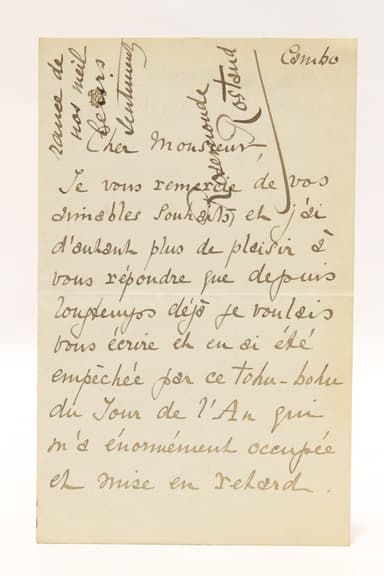 Cambo
Cher Monsieur,
Je vous remercie de vos
aimables souhaits, et j'ai
d'autant plus de plaisir à
vous répondre que depuis
longtemps déjà je voulais
vous écrire et en ai été
empêchée par ce tohu-bohu
du Jour de l'An qui
m'a énormément occupée
et mise en retard.
rance de
nos meil
leurs
sentiments
Rosemonde
Rostand